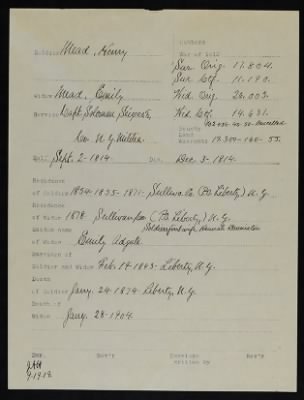 NUMBERS
War of 1812
Soldier Mead, Henry
Sur. Orig. 17.804.
Sur. Ctf. 11.190.
Widow Mead, Emily
Wid. Orig. 26.003.
Service Capt. Solomon
Wid. Ctf. 14.631.
N.Y. Militia.
Bounty
Land
Warrants 19.304-160-55.
Enl. Sept. 2-1814. Dis. Dec. 3-1814.
Residence
of Soldier 1854-1855-1871- Sullivan Co. (P.O. Liberty) N.Y.
Residence
of Widow 1878 Sullivan Co. (P.O. Liberty) N.Y.
Maiden name Soldier's first wife Hannah
of Widow Emily Adgate
Marriage of
Soldier and Widow Feb. 14-1843. Liberty, N.Y.
Death
of Soldier Jany. 24-1874 Liberty, N.Y.
Death of
Widow Jany. 28-1904.